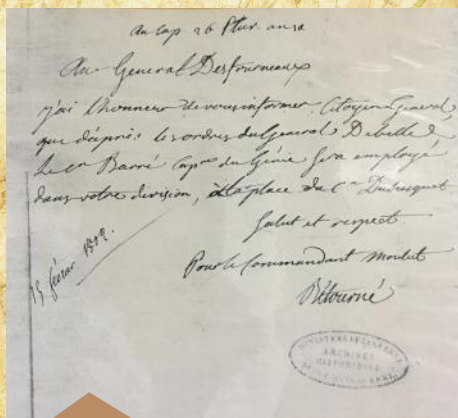 au Cap 26 Pluv. an 10
Au General Desfourneaux
j'ai l'honneur de vous informer, Citoyen General,
que d'après les ordres du General Debelle
le cen Barré Capne du Génie sera employé
dans votre division, à la place du Cen
Salut et respect
Pour le Commandant
Bétourné
15 février 1802.
ARCHIVES
HISTORIQUES